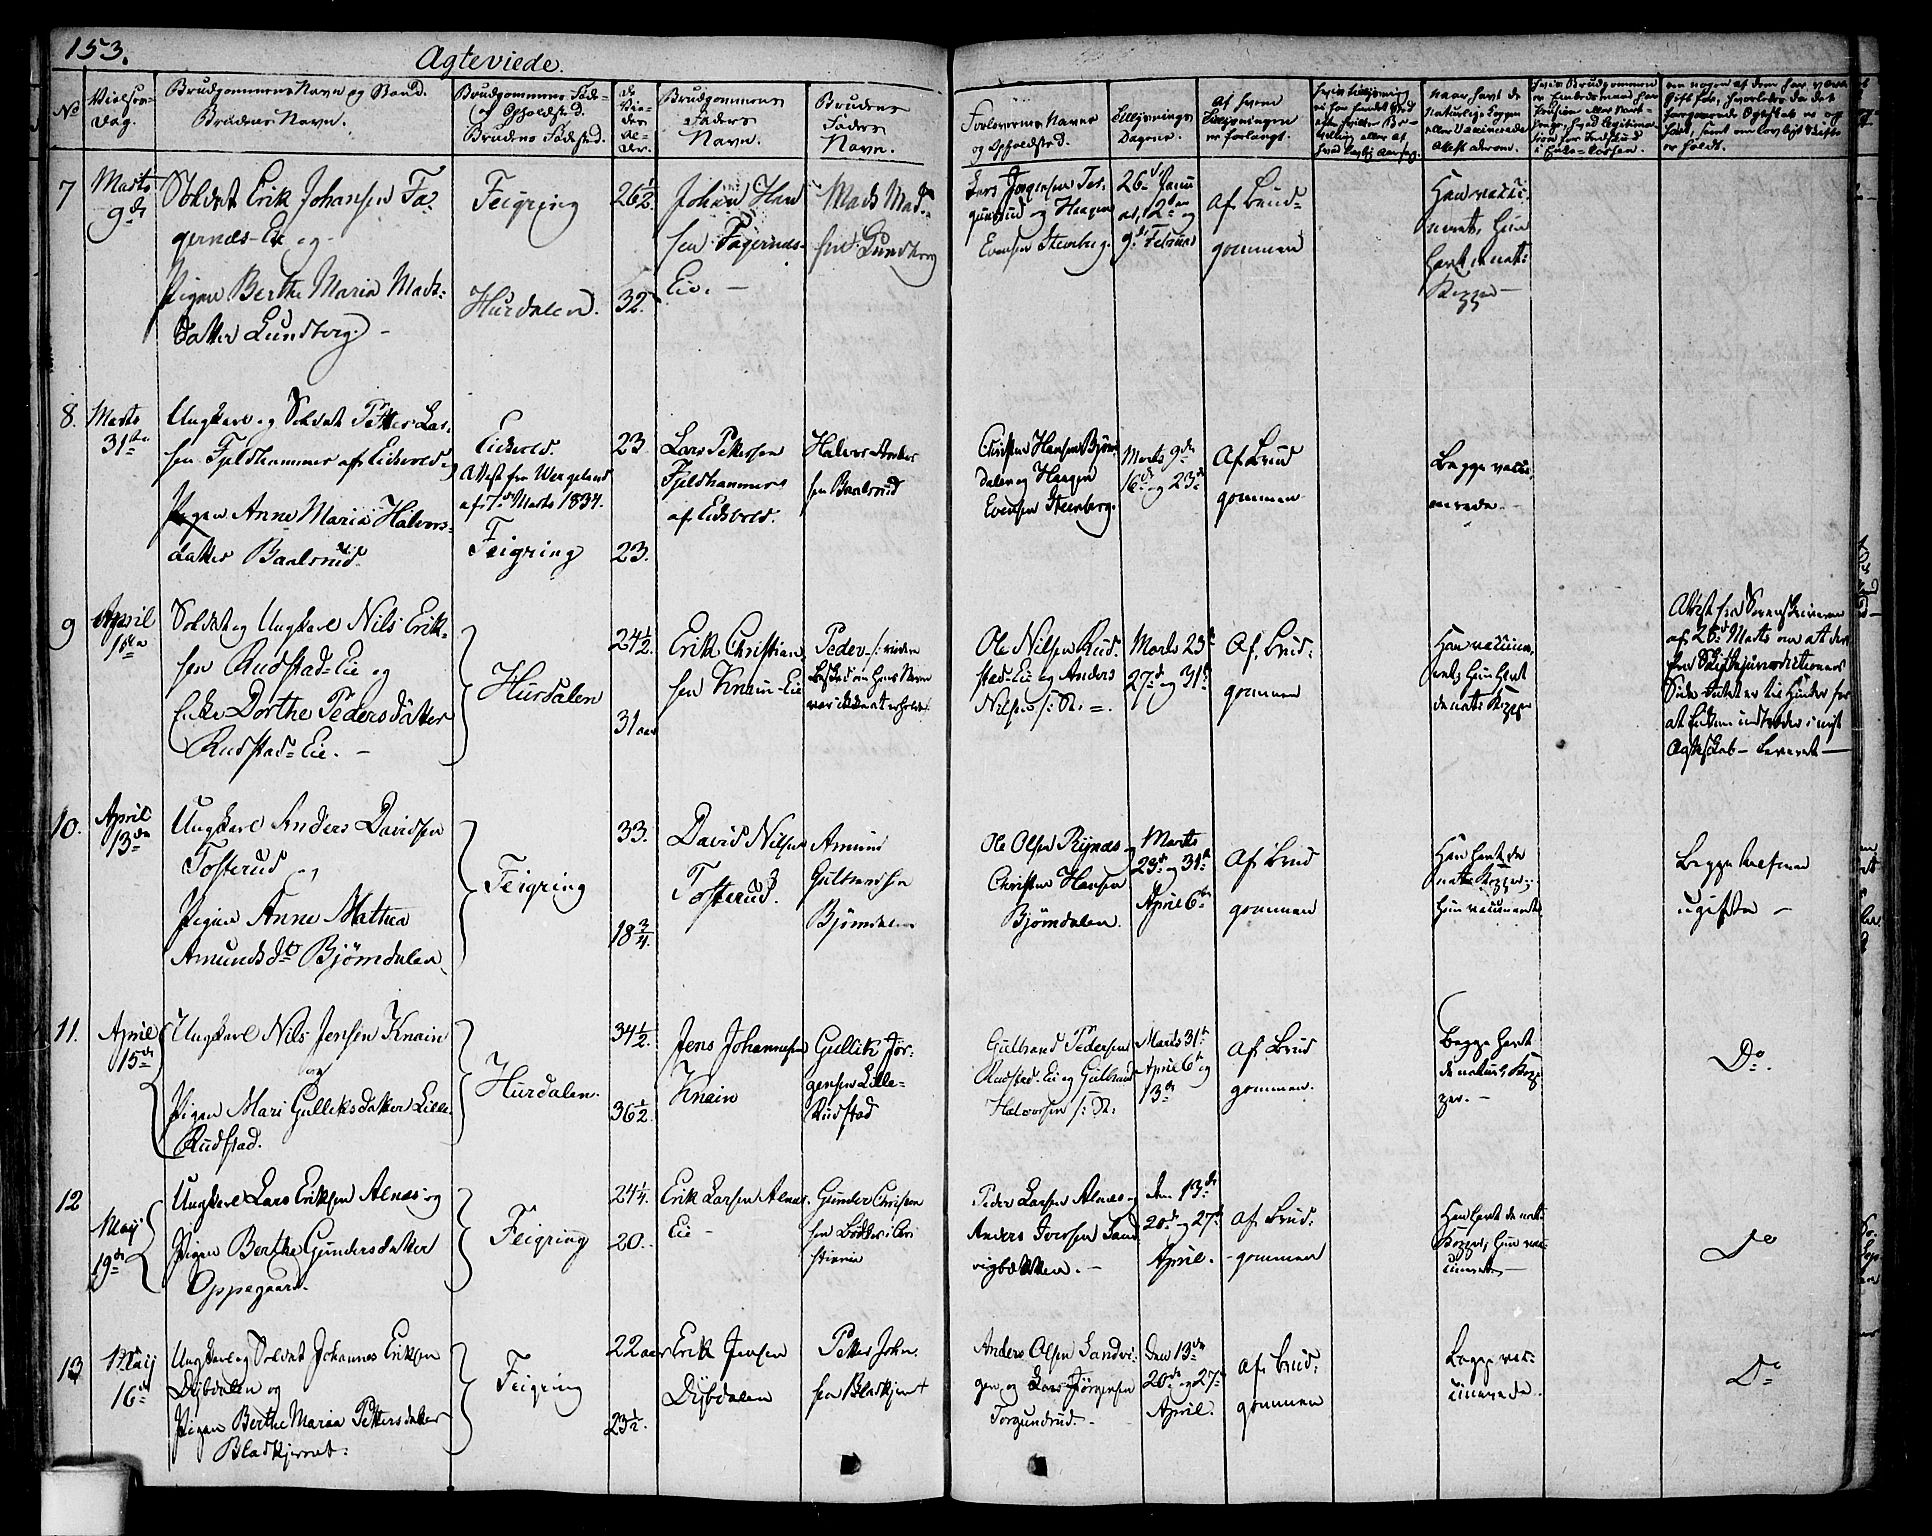 153.
Agteviede.
No
Vielses-
Dag.
Brudgommens Navn og Stand.
Brudens Navn.
Brudgommens Føde-
og Opholdsted.
Brudens Fødested.
de
Vie-
des
Al-
der.
Brudgommens
Faders
Navn.
Brudens
Faders
Navn.
Forlovernes Navne
og Opholdsted.
Tillysnings
Dagene.
Af hvem
Tillysningen
er forlangt.
7
Marts
9de
Soldat Erik Johansen Fa-
gernæs-Eie og
Pigen Berthe Maria Mads-
datter Lundberg.
Feigring
Hurdalen.
26½
32.
Johan Han
sen Fagernæs-
Eie.
Mads Mad-
sen Lundberg
Lars Jørgensen Tor-
gunrud og Haagen
Evensen Steenberg.
26de Janu
ar, 2den og
9de Februar
Af Brud-
gommen
Han vacci-
neret, hun
havt de nat:
Kopper
8.
Marts
31te
Ungkarl og Soldat Petter Lar-
sen Fjeldhammer af Eidsvold og
Pigen Anne Maria Halvors-
datter Baalsrud.
Eidsvold.
Attest fra Wergeland
af 7de Marts 1834.
Feigring
23.
23.
Lars Pettersen
Fjeldhammer
af Eidsvold.
Halvor Anders
sen Baalsrud
Christen Hansen Bjørn
dalen og Haagen
Evensen Steenberg.
Marts 9de
16de og 23de
Af Brud
gommen
Begge vacci-
nerede.
9
April
1ste
Soldat og Ungkarl Nils Erik-
sen Rudstad-Eie og
Enke Dorthe Pedersdatter
Rudstad-Eie.
Hurdalen
24½
31 aar
Erik Christian
sen Knain-Eie
Peder /: videre
Beskeed om hans Navn
var ikke at erholde
Ole Nilsen Rud-
stad-Eie og Anders
Nilsen /: St: =.
Marts 23de
27de og 31te
Af Brud:
gommen
Han vaccine-
ret, hun havt
de nat: Kopper
Attest fra Sorenskriveren
af 26de Marts om at der
fra Skiftejurisdictionens
Side Intet er til Hinder for
at Enken indtræder i nyt
Ægteskab leveret
10.
April
13de
Ungkarl Anders Davidsen
Tosterud og
Pigen Anne Mathea
Amundsdtr Bjørndalen
Feigring
33.
18¾
David Nilsen
Tosterud.
Amund
Gulbrandsen
Bjørndalen
Ole Olsen Rynæs og
Christen Hansen
Bjørndalen.
Marts
23de og 31te
April 6te
Af Brud
gommen
Han havt de
nat: Kopper,
hun vaccineret
Begge Forhen
ugifte
11.
April
15de
Ungkarl Nils Jensen Knain
og
Pigen Mari Gulliksdatter Lille-
Rudstad.
Hurdalen.
34½
36½
Jens Johannesen
Knain
Gullik Jør-
gensen Lille-
Rudstad
Gulbrand Pedersen
Rudstad-Eie og Gulbrand
Halvorsen /: St:
Marts 31te
April 6te og
13de
Af Brud
gommen.
Begge havt
de naturl. Kop
per.
Do.
12
Maij
19de
Ungkarl Lars Eriksen Alnæs og
Pigen Berthe Gundersdatter
Oppegaard.
Feigring
24¼.
20.
Erik Larsen Alnæs-
Eie
Gunder Christen
sen Bødker i Chri
stiania
Peder Larsen Alnæs og
Anders Iversen Sand
vigbakken.
den 13de
20de og 27de
April.
Af Brud:
gommen
Han havt de nat:
Kopper, hun vac-
cineret
Do
13
Maij
16de
Ungkarl og Soldat Johannes Eriksen
Dybdalen og
Pigen Berthe Maria Pettersdatter
Bladkjernet.
Feigring
22 aar
23½.
Erik Jensen
Dybdalen
Petter John
sen Bladkjern
Anders Olsen Sandvi-
gen og Lars Jørgensen
Torgundrud.
Den 13de
20de og 27de
April.
Af Brud:
gommen
Begge vac-
cinerede.
Do